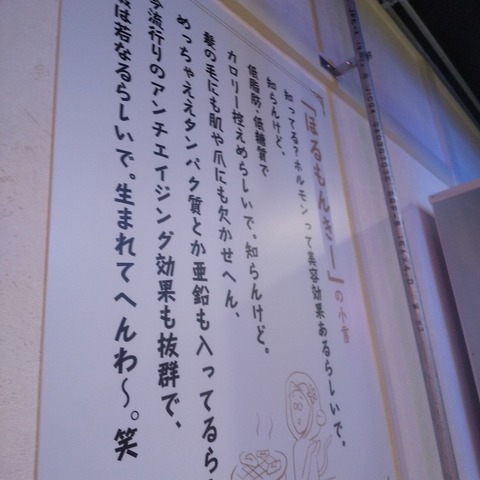 「ほるもんきー」の小言
知ってる?ホルモンって美容効果あるらしいで。
知らんけど、
低脂肪・低糖質で
カロリー控えめらしいで。知らんけど。
髪の毛にも肌や爪にも欠かせへん、
めっちゃええタンパク質とか亜鉛も入ってるら
流行りのアンチエイジング効果も抜群で、
は若なるらしいで。生まれてへんわ〜。笑